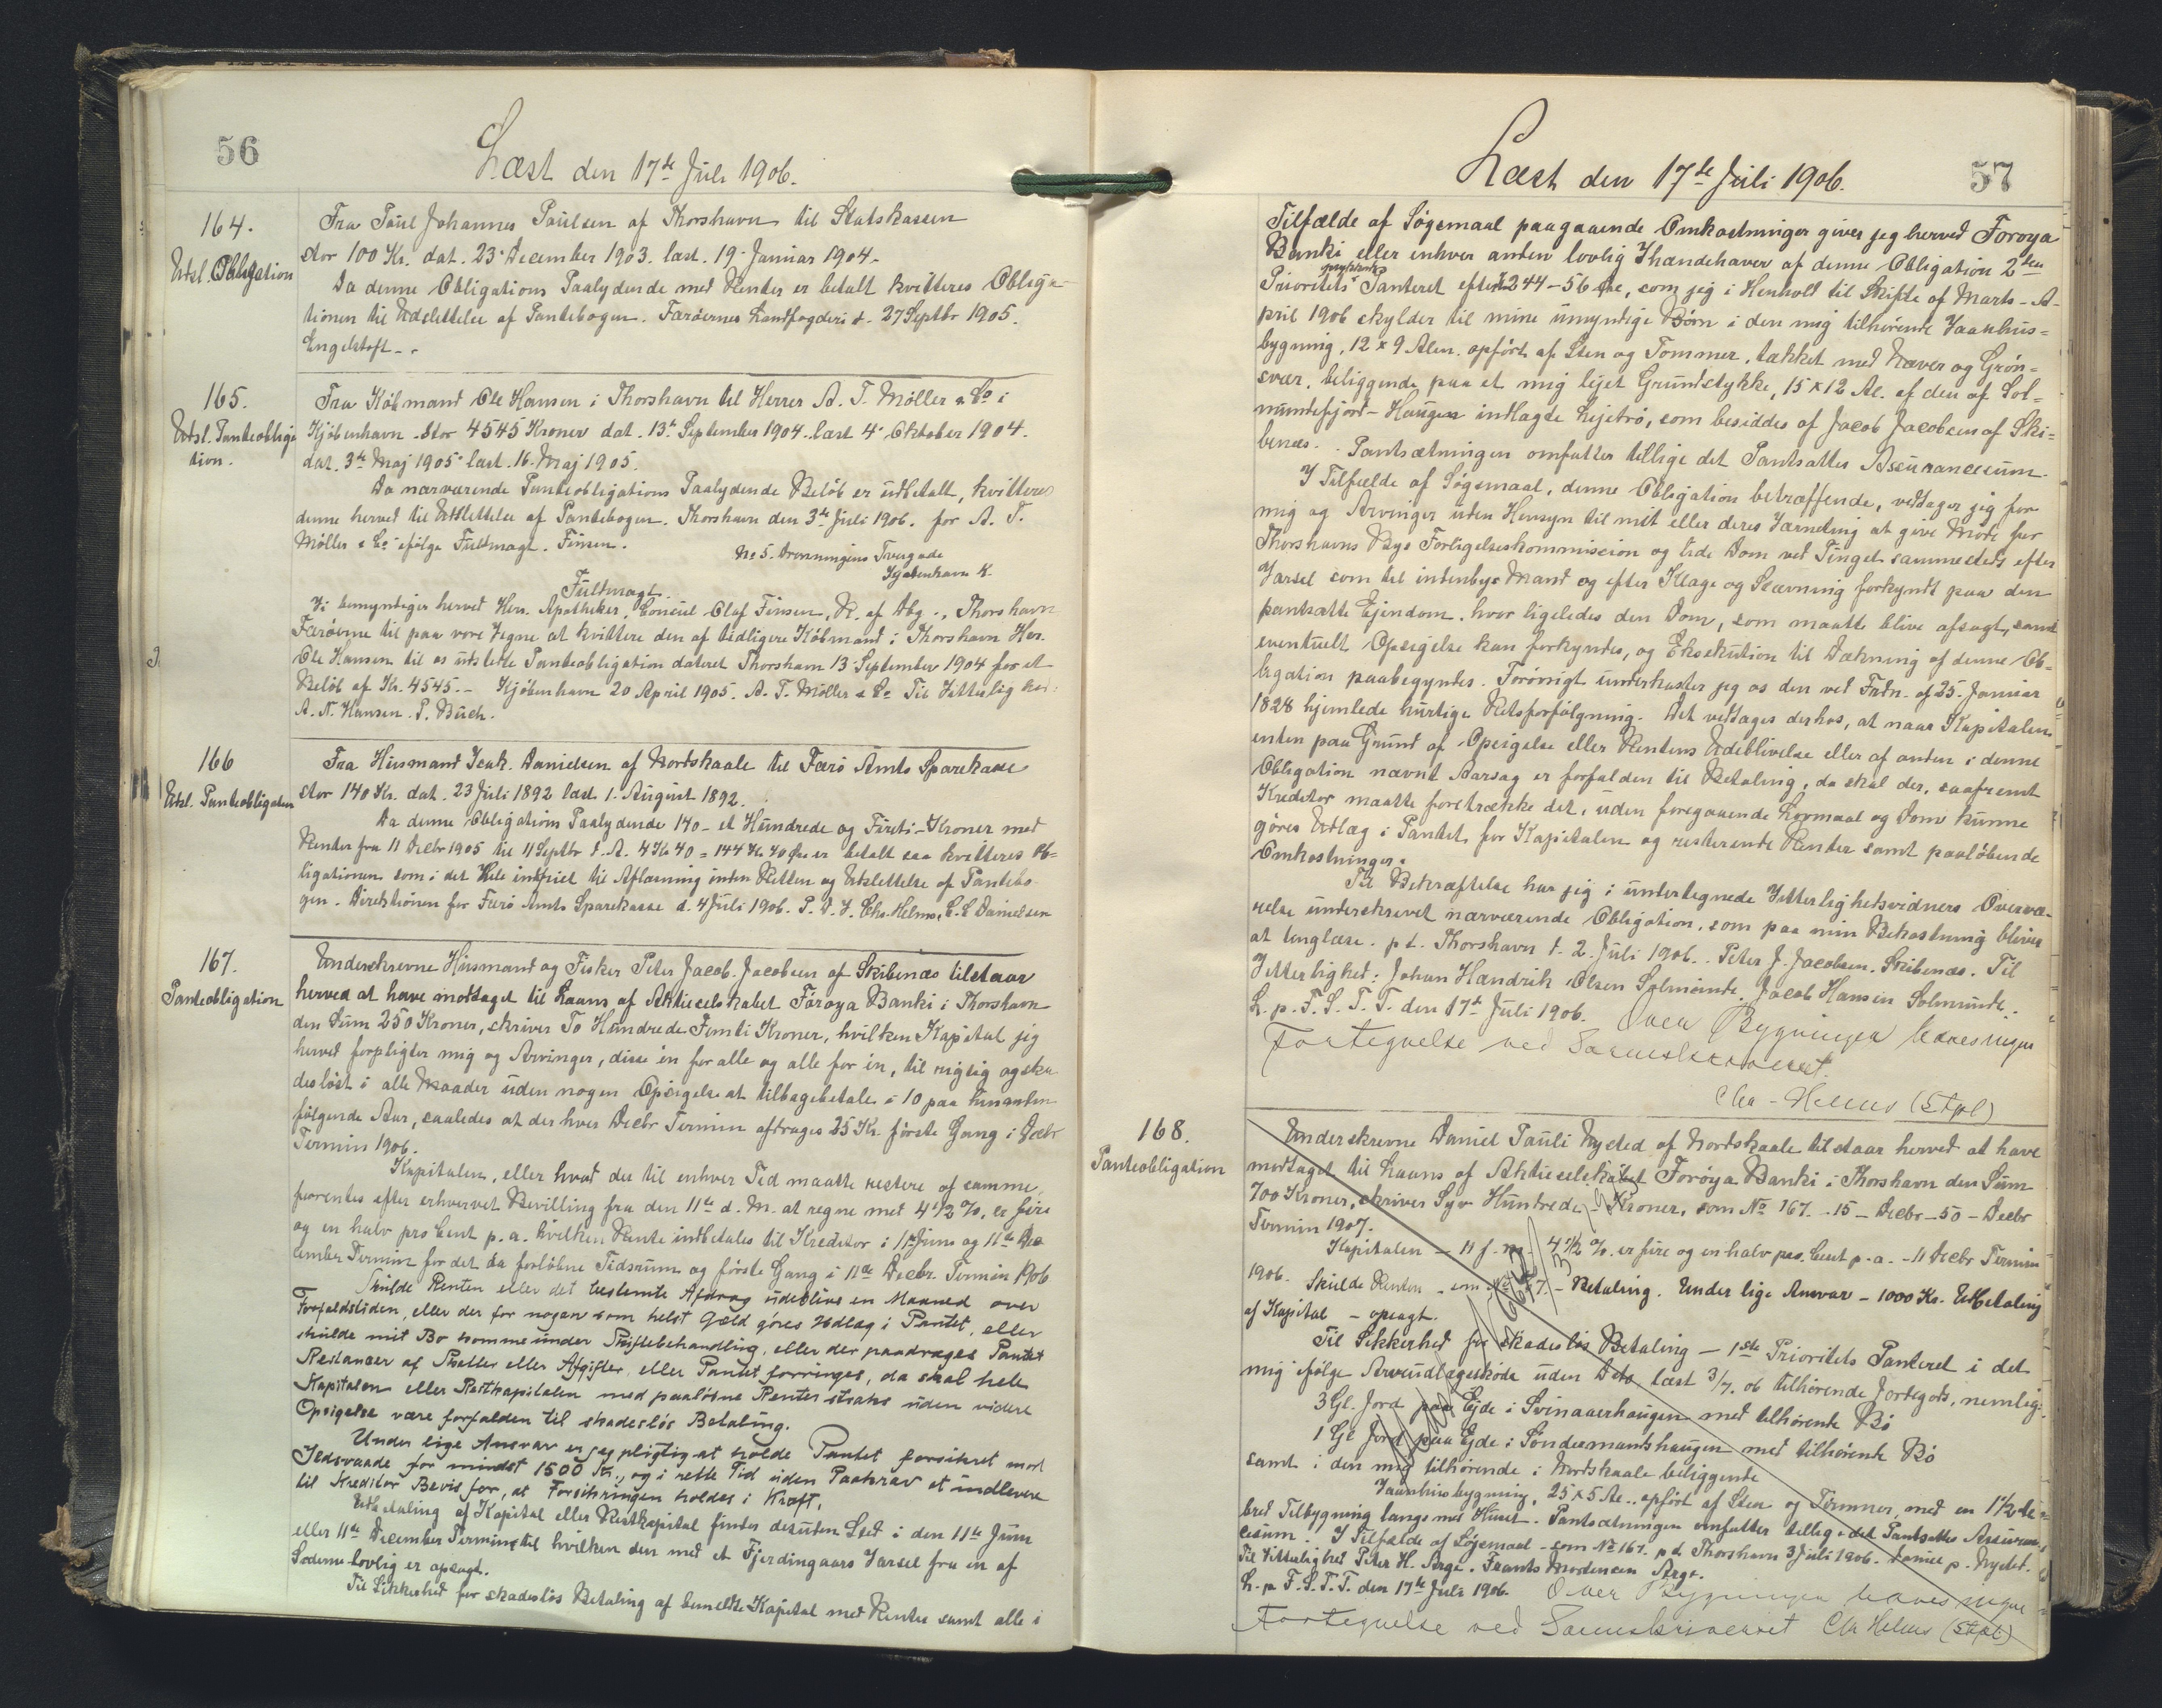 56
Læst den 17de Juli 1906.
164.
Udsl. Obligation
Fra Poul Johannes Poulsen af Thorshavn til Statskassen
stor 100 Kr. dat. 23. December 1903. læst. 19. Januar 1904.
Da denne Obligations Paalydende med Renter er betalt kvitteres Obliga-
tionen til Udslettelse af Pantebogen. Færøernes Landfogderi d. 27 Septbr 1905.
Engelstoft.
165.
Udsl. Panteobliga
tion.
Fra Købmand Ole Hansen i Thorshavn til Herrer A. T. Møller & Co i
Kjøbenhavn stor 4545 Kroner dat. 13de September 1904. læst 4. Oktober 1904.
dat. 3de Maj 1905 læst. 16. Maj 1905.
Da nærværende Panteobligations Paalydende Beløb er udbetalt, kvitteres
denne herved til Udslettelse af Pantebogen. Thorshavn den 3de Juli 1906. for A. T.
Møller & Co ifølge Fuldmagt. Finsen.
No 5. Dronningens Tvergade
Kjøbenhavn K.
Fuldmagt.
Vi bemyndiger herved Herr. Apotheker, Consul Olaf Finsen, R. af Dbg., Thorshavn
Færøerne til paa vore Vegne at kvittere den af tidligere Købmand i Thorshavn Her.
Ole Hansen til os udstedte Panteobligation dateret Thorshavn 13 September 1904 for et
Beløb af Kr. 4545.- Kjøbenhavn 20 April 1905. A. T. Møller & Co Til Vitterlighed:
A. N. Hansen. P. Buch.
166
Udsl. Panteobligation
Fra Husmand Joak. Danielsen af Nordskaale til Færø Amts Sparekasse
stor 140 Kr. dat. 23 Juli 1892 læst 1. August 1892.
Da denne Obligations Paalydende 140 - et Hundrede og Fireti - Kroner med
Renter fra 11 Decbr 1905 til 11 Septbr d. A. 4 Kr 40 = 144 Kr. 40 Øre er betalt saa kvitteres Ob-
ligationen som i det Hele indfriet til Aflæsning inden Retten og Udslettelse af Pantebo-
gen. Direktionen for Færø Amts Sparekasse d. 4 Juli 1906. P. D. V. Chr. Helms. E. E. Danielsen
167.
Panteobligation
Underskrevne Husmand og Fisker Peter Jacob Jacobsen af Skibenæs tilstaar
herved at have modtaget til Laans af Aktieselskabet Föroya Banki i Thorshavn
den Sum 250 Kroner, skriver To Hundrede Femti Kroner, hvilken Kapital jeg
herved forpligter mig og Arvinger, disse en for alle og alle for en, til rigtig og ska-
desløst i alle Maader uden nogen Opsigelse at tilbagebetale i 10 paa hinanden
følgende Aar, saaledes at der hver Decbr Termin afdrages 25 Kr. første Gang i Decbr
Termin 1906.
Kapitalen, eller hvad der til enhver Tid maatte restere af samme,
forrentes efter erhvervet Bevilling fra den 11te d. M. at regne med 4 1/2 %, er fire
og en halv pro Cent p. a. hvilken Rente indbetales til Kreditor i 11te Juni og 11te De-
cember Termin for det da forløbne Tidsrum og første Gang i 11te Decbr. Termin 1906
Skulde Renten eller det bestemte Afdrag udeblive en Maaned over
Forfaldstiden, eller der for nogen som helst Gæld gøres Udlæg i Pantet, eller
skulde mit Bo komme under Skiftebehandling, eller der paadrages Pantet
Restancer af Skatter eller Afgifter, eller Pantet forringes, da skal hele
Kapitalen eller Restkapitalen med paaløbne Renter straks uden videre
Opsigelse være forfalden til skadesløs Betaling.
Under lige Ansvar er jeg pligtig at holde Pantet forsikret mod
Ildsvaade for mindst 1500 Kr., og i rette Tid uden Paakrav at indlevere
til Kreditor Bevis for, at Forsikringen holdes i Kraft.
Udbetaling af Kapital eller Restkapital finder desuden Sted i den 11te Juni
eller 11te December Termin til hvilken den med et Fjerdingaars Varsel fra en af
Siderne lovlig er opsagt.
Til Sikkerhed for skadesløs Betaling af bemeldte Kapital med Renter samt alle i
Læst den 17de Juli 1906.
57
Tilfælde af Søgsmaal paagaaende Omkostninger giver jeg herved Föroya
Banki eller enhver anden lovlig Ihændehaver af denne Obligation 2den
Prioritets Panteret efter 244 - 56 Øre, som jeg i Henhold til Skifte af Marts - A-
pril 1906 skylder til mine umyndige Børn i den mig tilhørende Vaanhus-
bygning, 12 x 9 Alen. opført af Sten og Tømmer, takket med Næver og Grøn-
svær, beliggende paa et mig lejet Grundstykke, 15 x 12 Al. af den af Sol-
mundefjord-Haugen indlagde Lejetrö, som besiddes af Jacob Jacobsen af Ski-
benæs. Pantsætningen omfatter tillige det Pantsattes Assurancesum.
I Tilfælde af Søgsmaal, denne Obligation betræffende, vedtager jeg for
mig og Arvinger uden Hensyn til mit eller deres Værneting at give Møde for
Thorshavns Bys Forligelseskommission og lide Dom ved Tinget sammesteds efter
Varsel som til indenbys Mand og efter Klage og Stævning forkyndt paa den
pantsatte Ejendom, hvor ligeledes den Dom, som maatte blive afsagt, samt
eventuelt Opsigelse kan forkyndes, og Eksekution til Dækning af denne Ob-
ligation paabegyndes. Forøvrigt underkaster jeg os den ved Frdn. af 25. Januar
1828 hjemlede hurtige Retsforfølgning. Det vedtages derhos, at naar Kapitalen
enten paa Grund af Opsigelse eller Rentens Udeblivelse eller af anden i denne
Obligation nævnt Aarsag er forfalden til Betaling, da skal der, saafremt
Kreditor maatte foretrække det, uden foregaaende Lovmaal og Dom kunne
gøres Udlæg i Pantet, for Kapitalen og resterende Renter samt paaløbende
Omkostninger.
Til Bekræftelse har jeg i undertegnede Vitterlighedsvidners Overvæ-
relse underskrevet nærværende Obligation, som paa min Bekostning bliver
at tinglæse. p t. Thorshavn d. 2. Juli 1906. Peter J. Jacobsen. Skibenæs. Til
Vitterlighed: Johan Hendrik Olsen Solmunde. Jacob Hansen Solmunde.
L. p. F. S. T. T. den 17de Juli 1906. Over Bygningen haves ingen
Fortegnelse ved Sorenskriveriet.
Chr. Helms (Stpl)
168.
Panteobligation
Underskrevne Daniel Pauli Nysted af Nordskaale tilstaar herved at have
modtaget til Laans af Aktieselskabet Föroya Banki i Thorshavn den Sum
700 Kroner, skriver Syv Hundrede Kroner, som No 167. - 15 - Decbr - 50 - Decbr
Termin 1907.
Kapitalen - 11 f. m. - 4 1/2 % er fire og en halv pro Cent p. a. - 11 Decbr Termin
1906. Skulde Renten - som No 167. - Betaling. Under lige Ansvar - 1000 Kr. Udbetaling
af Kapital - opsagt.
Til Sikkerhed for skadesløs Betaling - 1ste Prioritets Panteret i det
mig ifølge Arveudlægsskøde uden Dato læst 3/7. 06 tilhørende Jordegods, nemlig:
3 Gl. Jord paa Ejde i Svinaaerhaugen med tilhørende Bø
1 Gl Jord paa Ejde i Søndermandshaugen med tilhørende Bø
samt i den mig tilhørende i Nordskaale beliggende
Vaanhusbygning, 25 x 5 Al., opført af Sten og Tømmer, med en 1 1/2 Al.
bred Tilbygning langs med Huset. Pantsætningen omfatter tillige det Pantsattes Assuran-
cesum. I Tilfælde af Søgsmaal - som No 167. p t. Thorshavn 3 Juli 1906. Daniel p. Nysted.
Til Vitterlighed Peter H. Arge. Frants Mortensen Arge.
L. p F. S. T. T. den 17de Juli 1906. Over Bygningen haves ingen
Fortegnelse ved Sorenskriveriet Chr Helms (Stpl)